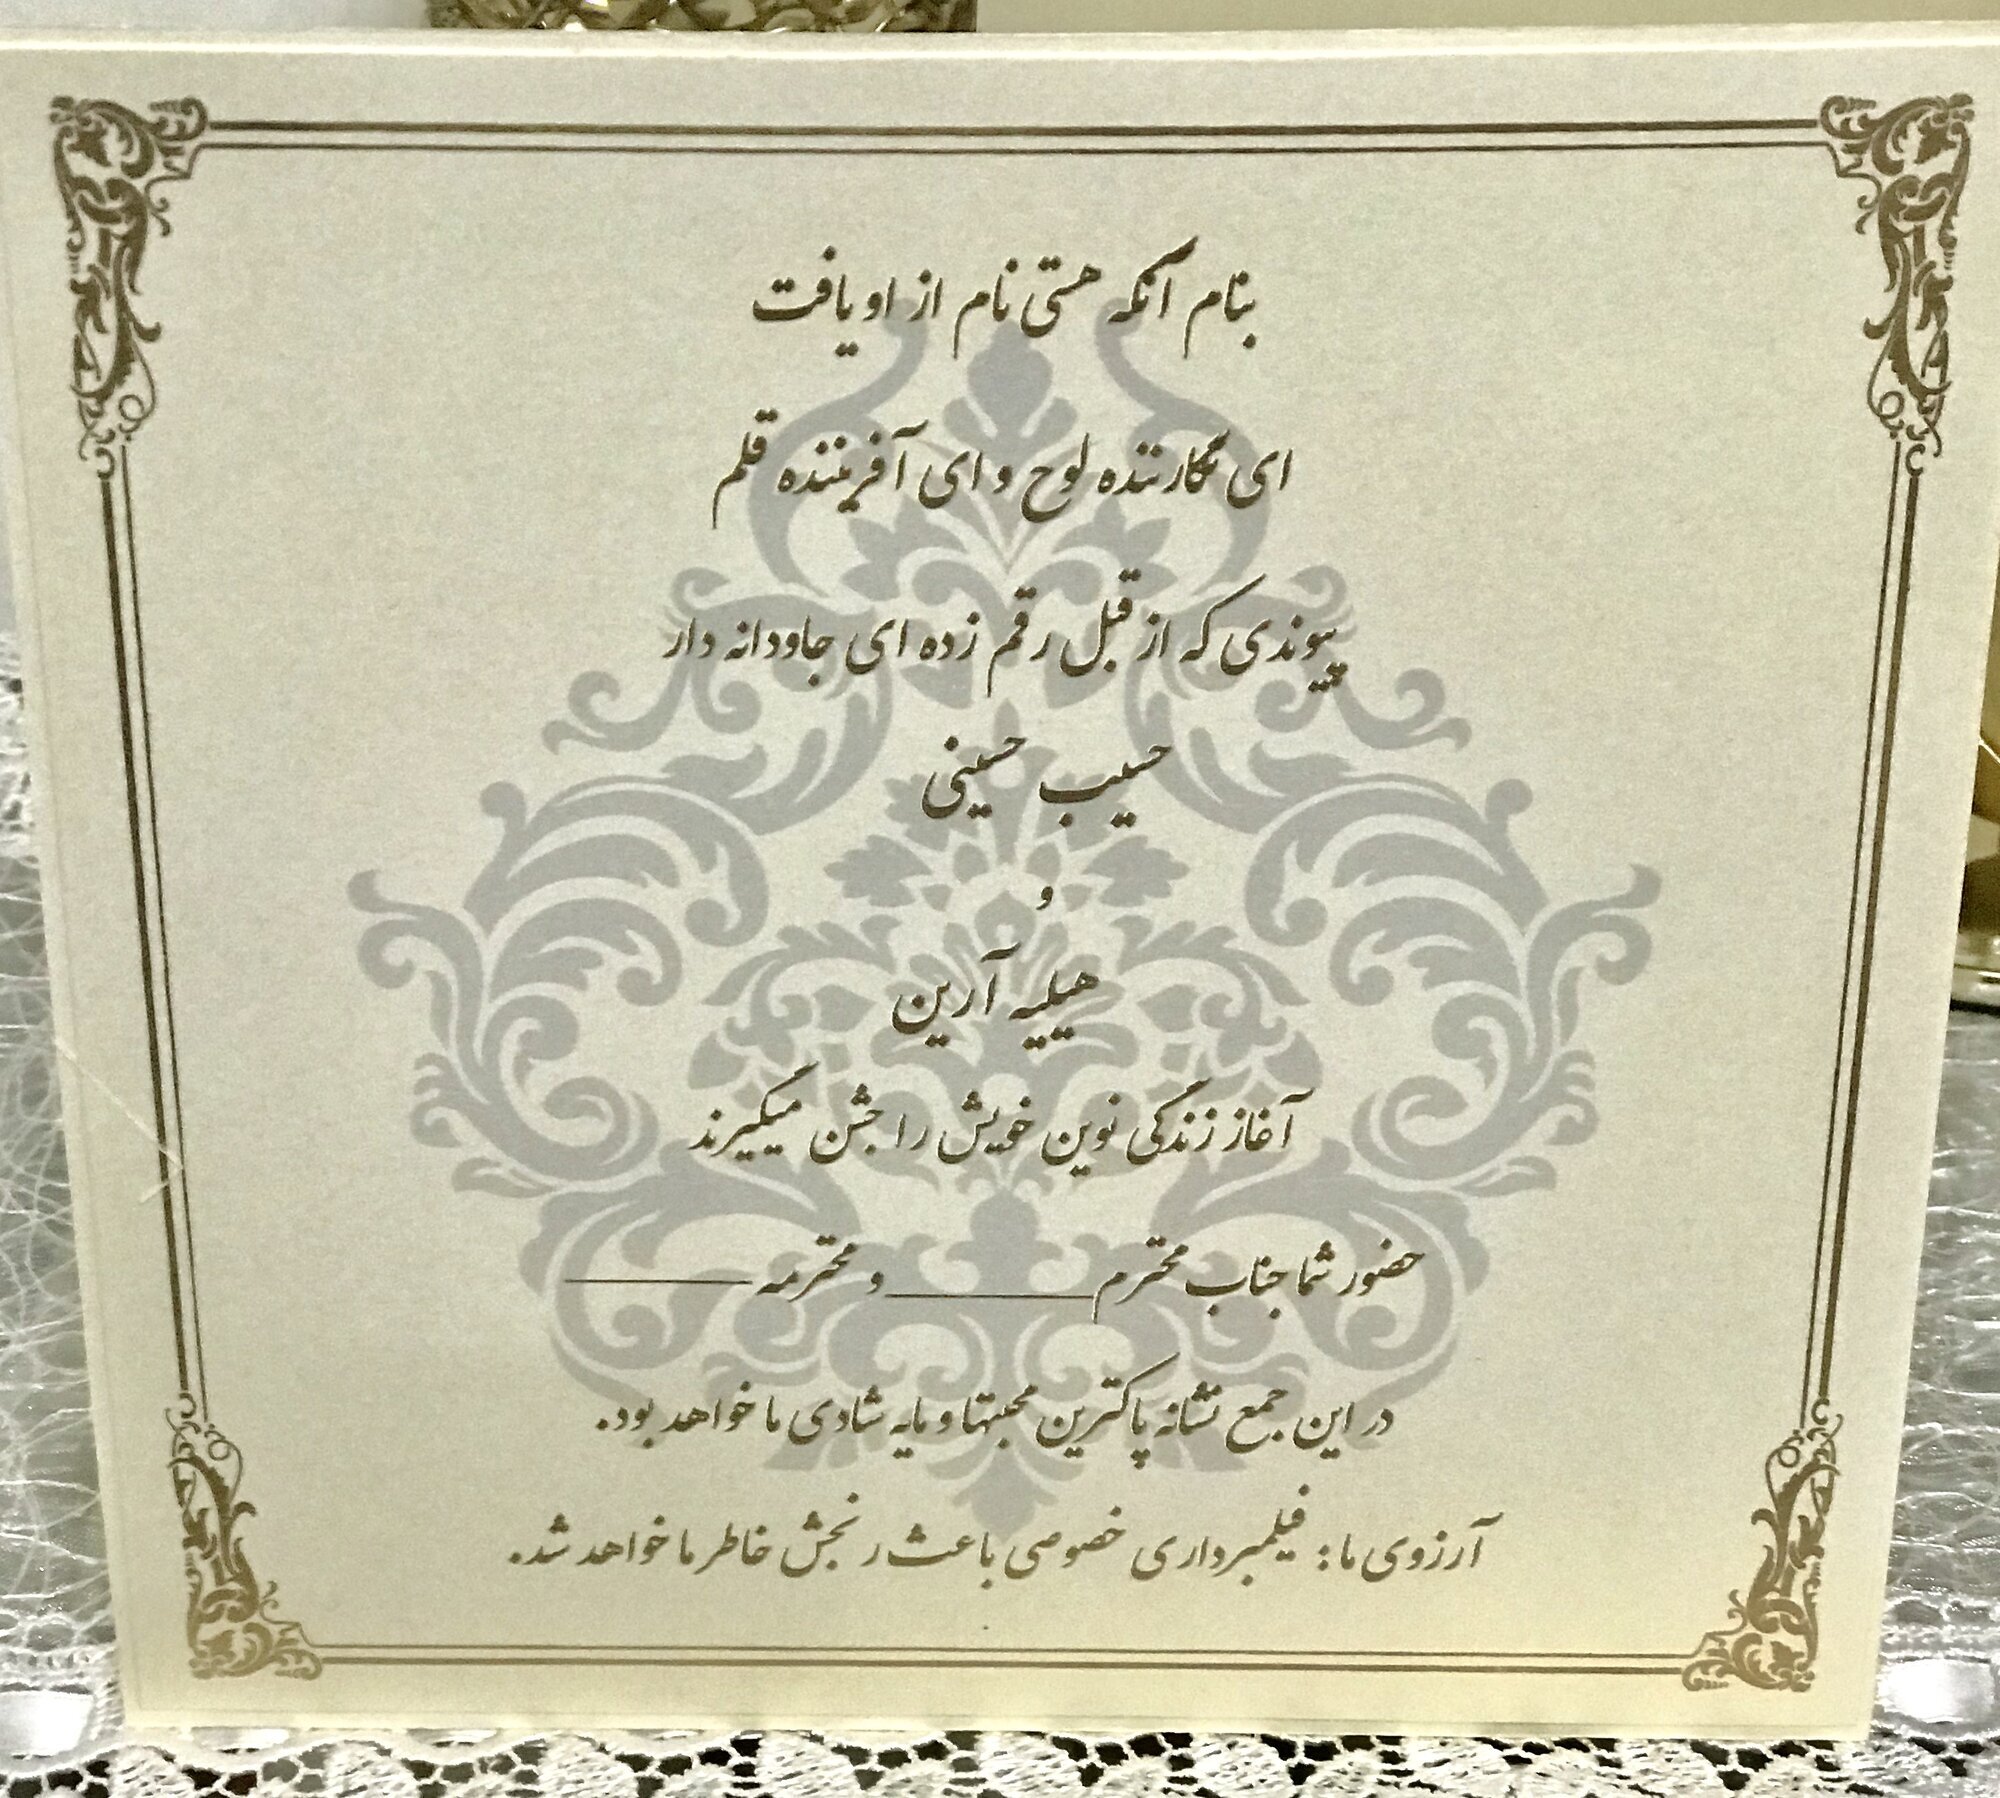 بنام آنکه هستی نام از او یافت
ای نگارنده لوح و ای آفریننده قلم
پیوندی که از قبل رقم زده ای جاودانه دار
حسیب حسینی
و
هیلیه آرین
آغاز زندگی نوین خویش را جشن میگیرند
حضور شما جناب محترم ________ و محترمه ________
در این جمع نشانه پاکترین محبتها و مایه شادی ما خواهد بود.
آرزوی ما: فیلمبرداری خصوصی باعث رنجش خاطر ما خواهد شد.